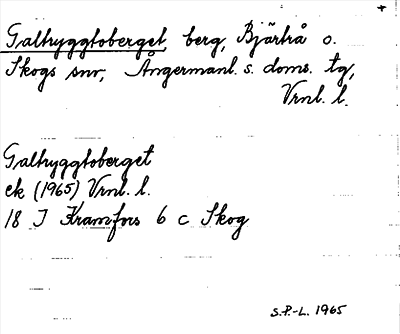 Galtryggtoberget, berg, Bjärtrå o.
Skogs snr, Ångermanl. s. doms. tg,
Vrnl. l.
Galtryggtoberget
ek (1965) Vrnl. l.
18 J Kramfors 6 c Skog
S.P.-L. 1965